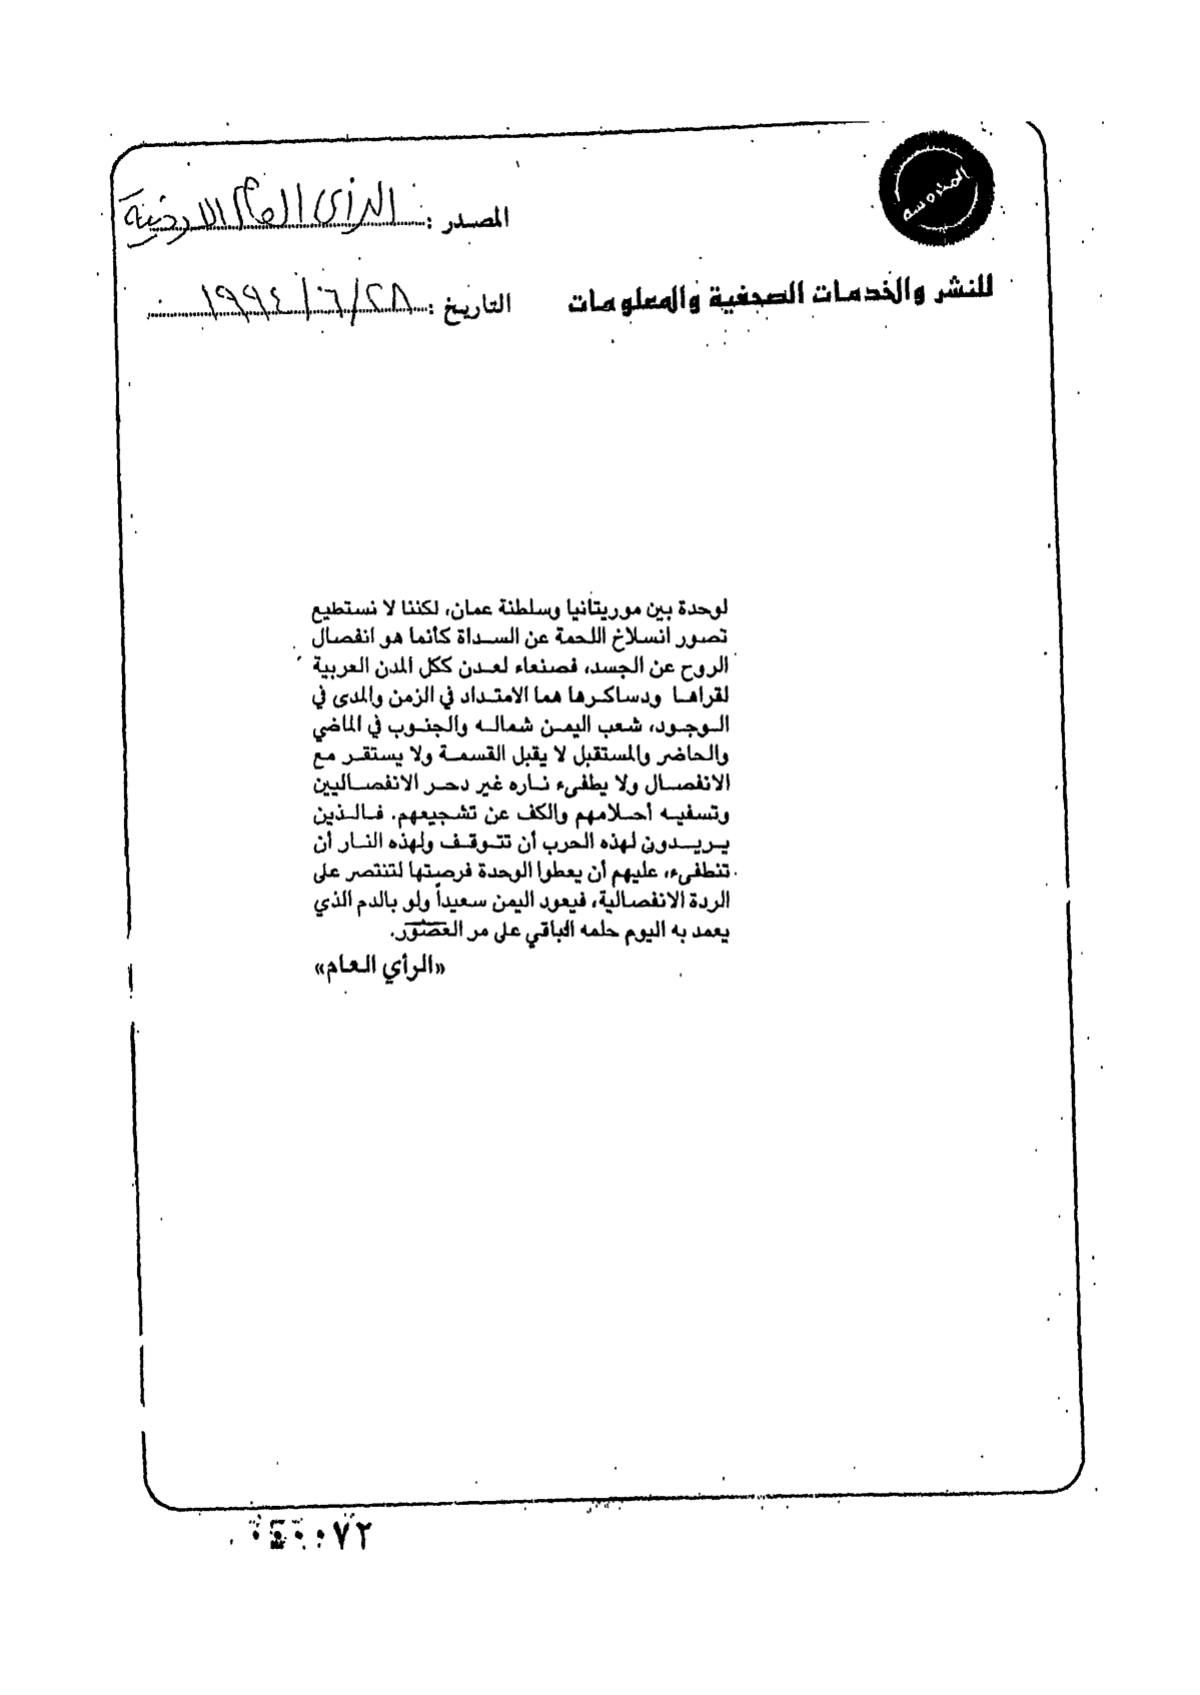 المحروسة
المصدر : الرأى العام الاردنية
للنشر والخدمات الصحفية والمعلومات
التاريخ : ٢٨ / ٦ / ١٩٩٤
لوحدة بين موريتانيا وسلطنة عمان، لكننا لا نستطيع
تصور انسلاخ اللحمة عن السداة كأنما هو انفصال
الروح عن الجسد، فصنعاء لعدن ككل المدن العربية
لقراها ودساكرها هما الامتداد في الزمن والمدى في
الوجود، شعب اليمن شماله والجنوب في الماضي
والحاضر والمستقبل لا يقبل القسمة ولا يستقر مع
الانفصال ولا يطفىء ناره غير دحر الانفصاليين
وتسفيه أحلامهم والكف عن تشجيعهم. فالذين
يريدون لهذه الحرب أن تتوقف ولهذه النار أن
تنطفىء، عليهم أن يعطوا الوحدة فرصتها لتنتصر على
الردة الانفصالية، فيعود اليمن سعيداً ولو بالدم الذي
يعمد به اليوم حلمه الباقي على مر العصور.
«الرأي العام»